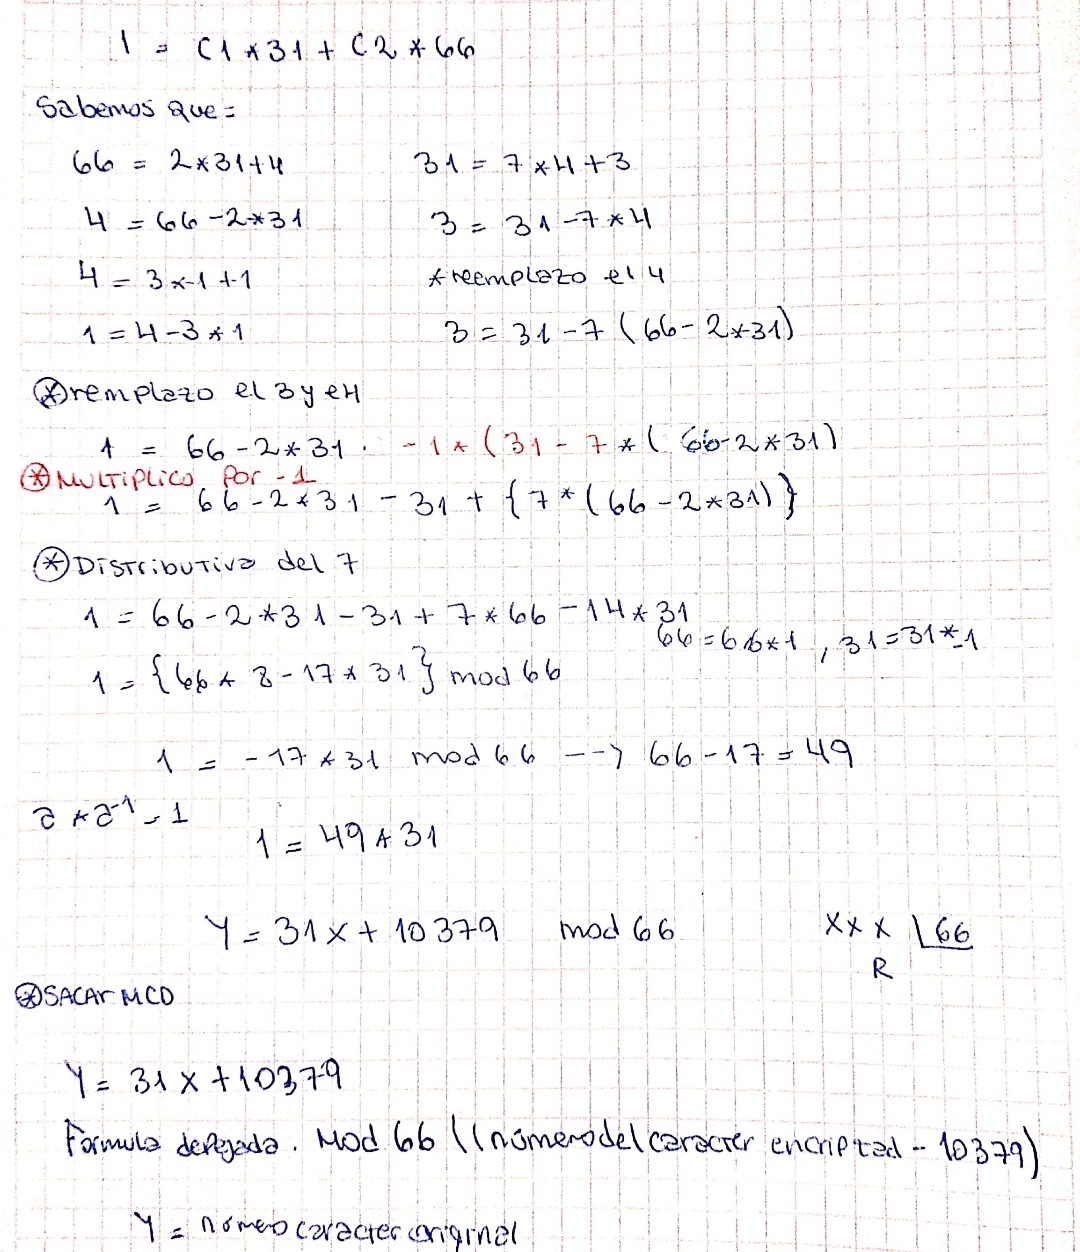 1 = C1*31 + C2*66
Sabemos que=
66 = 2*31+4 31 = 7*4+3
4 = 66-2*31 3 = 31-7*4
4 = 3*-1+1 *reemplazo el 4
1 = 4-3*1 3 = 31-7(66-2*31)
⊛remplazo el 3 y el 4
1 = 66-2*31. -1*(31-7*(66-2*31)
⊛MULTIPLICO POR -1
1 = 66-2*31-31+{7*(66-2*31)}
⊛DISTRIBUTIVA del 7
1 = 66-2*31-31+7*66-14*31
66=66*1, 31=31*-1
1 = {66*8-17*31} mod 66
1 = -17*31 mod 66 --> 66-17=49
a*a⁻¹=1
1 = 49*31
Y = 31x + 10379 mod 66 xxx |66
R
⊛SACAR MCD
Y = 31x+10379
Formula despejada. Mod 66 ((número del caracter encriptad - 10379)
Y = número caracter original